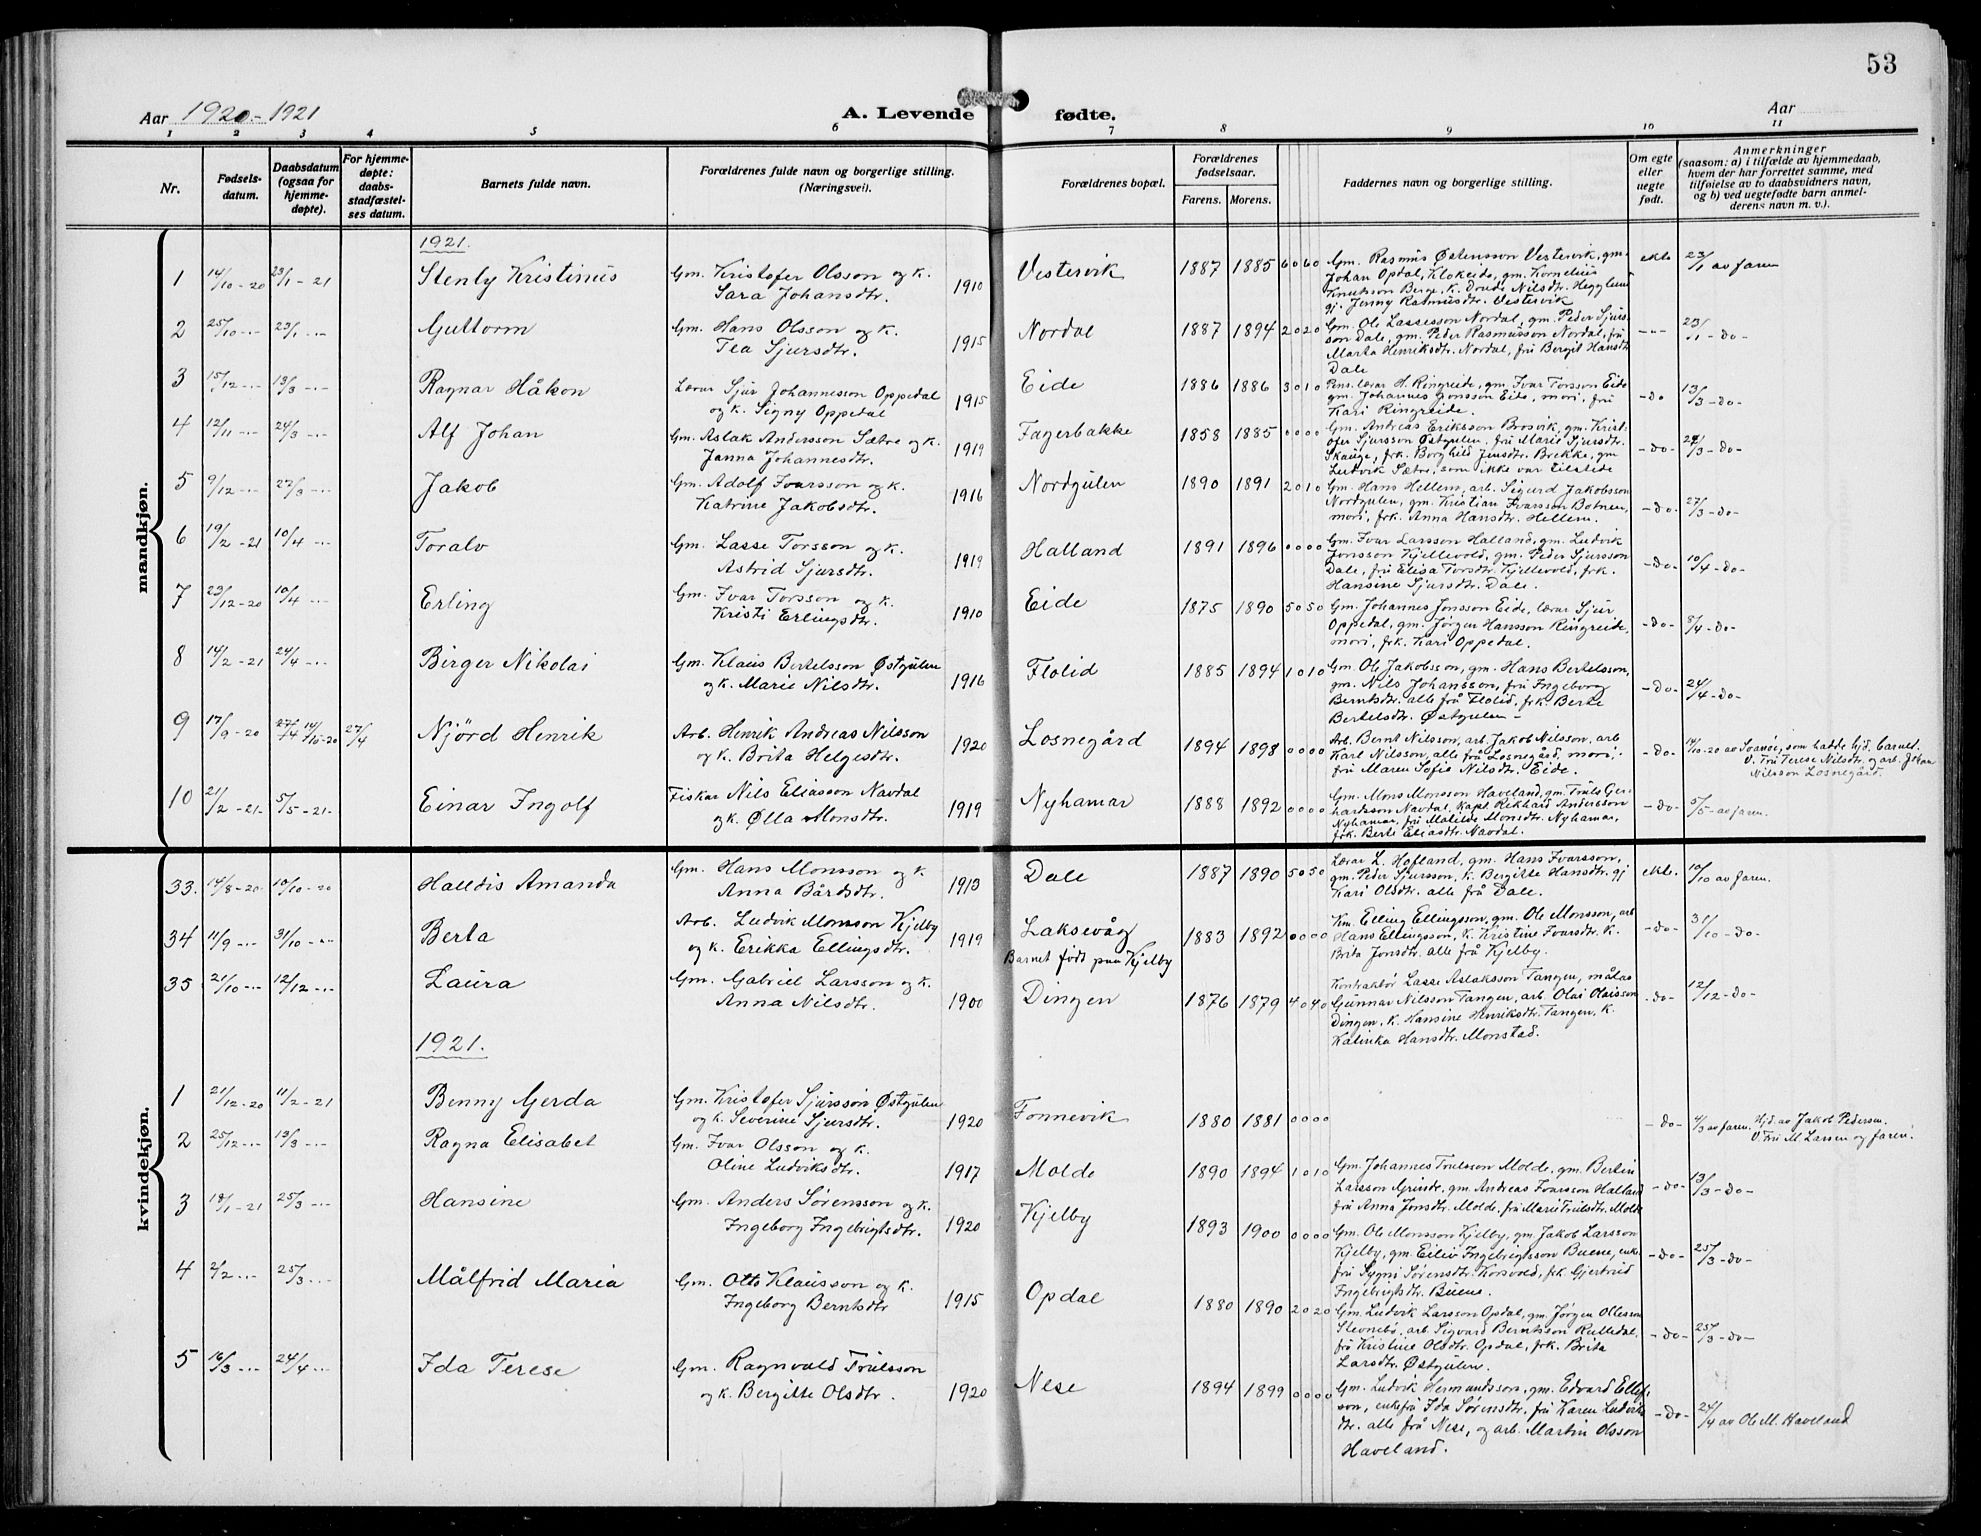 53
Aar 1920-1921
A. Levende fødte.
Aar
1 2 3 4 5 6 7 8 9 10 11
Nr.
Fødsels-
datum.
Daabsdatum
(ogsaa for
hjemme-
døpte).
For hjemme-
døpte:
daabs-
stadfæstel-
ses datum.
Barnets fulde navn.
Forældrenes fulde navn og borgerlige stilling.
(Næringsvei).
Forældrenes bopæl.
Forældrenes
fødselsaar.
Farens. Morens.
Faddernes navn og borgerlige stilling.
Om egte
eller
uegte
født.
Anmerkninger
(saasom: a) i tilfælde av hjemmedaab,
hvem der har forrettet samme, med
tilføielse av to daabsvidners navn,
og b) ved uegtefødte barn anmel-
derens navn m. v.).
mandkjøn.
1921.
1 14/10-20 23/1-21 Stenly Kristinus
Gm. Kristofer Olsson og k.
Sara Johansdtr. 1910
Vestervik 1887 1885 6 0 6 0
Gm. Rasmus Østensson Vestervik, gm.
Johan Opdal, Klokeide, gm. Kornelius
Knutsson Berge, k. Nilsdtr. Hegglund
gj. Jenny Rasmusdtr. Vestervik
ekte 23/1 av faren
2 25/10 -"- 23/1 -"- Guttorm
Gm. Hans Olsson og k.
Tea Sjursdtr. 1915
Nordal 1887 1894 2 0 2 0
Gm. Ole Lassesson Nordal, gm. Peder Sjurs-
son Dale, gm. Peder Rasmusson Nordal, fru
Marta Henriksdtr. Nordal, fru Bergit Hansdtr
Dale
-"- 23/1 -do-
3 15/12 -"- 13/3 -"- Ragnar Håkon
Lærar Sjur Johannesson Oppedal
og k. Signy Oppedal 1915
Eide 1886 1886 3 0 1 0
Pens. lærar H. Ringreide, gm. Ivar Torsson Eide
gm. Johannes Jonsson Eide, mori, fru
Kari Ringreide.
-do 13/3 -do-
4 12/11 -"- 24/3 -"- Alf Johan
Gm. Aslak Andersson Sætre og k.
Janna Johannesdtr. 1919
Fagerbakke 1858 1885 0 0 0 0
Gm. Andreas Eriksson Brosvik, gm. Krist-
ofer Sjursson Østgulen, fru Marie Sjursdtr.
Skauge, frk. Borghild Jensdtr. Brekke, gm
Ludvik Sætre, som ikke var tilstede
-do- 24/3 -do-
5 9/12 -"- 27/3 -"- Jakob
Gm. Adolf Ivarsson og k.
Katrine Jakobsdtr. 1916
Nordgulen 1890 1891 2 0 1 0
Gm. Hans Hellem, arb. Sigurd Jakobsson
Nordgulen, gm. Kristian Ivarsson Botnen,
mori, frk. Anna Hansdtr. Hellem.
-do- 27/3 -do-
6 19/2-21 10/4 -"- Toralv
Gm. Lasse Torsson og k.
Astrid Sjursdtr. 1919
Halland 1891 1896 0 0 0 0
Gm. Ivar Larsson Halland, gm. Ludvik
Jonsson Kjellevold, gm. Peder Sjursson
Dale, fru Elisa Torsdtr. Kjellevold, frk.
Hansine Sjursdtr. Dale.
-do- 10/4 -do-
7 23/12-20 10/4 -"- Erling
Gm. Ivar Torsson og k.
Kristi Erlingsdtr. 1910
Eide 1875 1890 5 0 5 0
Gm. Johannes Jonsson Eide, lærar Sjur
Oppedal, gm. Jørgen Hansson Ringreide,
mori, frk. Kari Oppedal.
-do- 8/4 -do-
8 14/2-21 24/4 -"- Birger Nikolai
Gm. Klaus Bertelsson Østgulen
og k. Marie Nilsdtr. 1916
Flolid 1885 1894 1 0 1 0
Gm. Ole Jakobsson, gm. Hans Bertelsson,
gm. Nils Johansson, fru Ingeborg
Berntsdtr. alle frå Flolid, frk. Berte
Bertelsdtr. Østgulen -
-do- 24/4 -do-
9 17/9-20 27/4 14/10-20 27/4 Njörd Henrik
Arb. Henrik Andreas Nilsson
og k. Brita Helgesdtr. 1920
Losnegård 1894 1898 0 0 0 0
Arb. Bernt Nilsson, arb. Jakob Nilsson, arb
Karl Nilsson, alle frå Losnegård, mori,
fru Maren Sofie Nilsdtr. Eide.
-do- 14/10-20 av Svanøe, som hadde hjd. barnet.
V. Fru Terese Nilsdtr og arb. Johan
Nilsson Losnegård.
10 21/2-21- 5/5-21- Einar Ingolf
Fiskar Nils Eliasson Navdal
og k. Ølla Monsdtr. 1919
Nyhamar 1888 1892 0 0 0 0
Gm. Mons Monsson Haveland, gm. Truls Ger-
hardsson Navdal, kapt. Rikhard Andersson
Nyhamar, fru Matilde Monsdtr. Nyhamar,
frk. Berte Eliasdtr. Navdal.
-do- 5/5- av faren.
kvindekjøn.
33. 14/8-20 10/10-20 Halldis Amanda
Gm. Hans Monsson og k.
Anna Bårdsdtr. 1913
Dale 1887 1890 5 0 5 0
Lærar L. Hofland, gm. Hans Ivarsson,
gm. Peder Sjursson, k. Bergitte Hansdtr. gj
Kari Olsdtr. alle frå Dale.
ekte. 10/10 av faren.
34 11/9 -"- 31/10 -"- Berta
Arb. Ludvik Monsson Kjelby
og k. Erikka Ellingsdtr. 1919
Laksevåg
Barnet født paa Kjelby
1883 1892 0 0 0 0
Km. Elling Ellingsson, gm. Ole Monsson, arb
Hans Ellingsson, k. Kristine Ivarsdtr. k.
Brita Jonsdtr. alle frå Kjelby.
-do- 31/10 -do-
35 21/10 -"- 12/12 -"- Laura
Gm. Gabriel Larsson og k.
Anna Nilsdtr. 1900
Dingen 1876 1879 4 0 4 0
Kontraktør Lasse Aslaksson Tangen, målar
Gunnar Nilsson Tangen, arb. Olai Olaisson
Dingen, k. Hansine Henriksdtr. Tangen, k.
Katinka Hansdtr. Monstad.
-do- 12/12 -do-
1921.
1 21/12-20 11/2-21 Benny Gerda
Gm. Kristofer Sjursson Østgulen
og k. Severine Sjursdtr. 1920
Fonnevik 1880 1881 0 0 0 0
-do- 4/3 av faren. Hjd. av Jakob Pedersen.
V. Fru M. Larsen og faren.
2 25/12 -"- 13/3 -"- Ragna Elisabet
Gm. Ivar Olsson og k.
Oline Ludviksdtr. 1917
Molde 1890 1894 1 0 1 0
Gm. Johannes Trulsson Molde, gm. Bertin
Larsson Grinde, gm Andreas Ivarsson Halland
fru Anna Jonsdtr. Molde, fru Marie Trulsdtr. Molde
-do- 13/3 -do-
3 18/1-21 25/3 -"- Hansine
Gm. Anders Sørensson og k.
Ingeborg Ingebrigtsdtr. 1920
Kjelby 1893 1900 0 0 0 0
Gm. Ole Monsson Kjelby, gm Jakob Larsson
Kjelby, gm. Eiliv Ingebrigtsson Buene, enke
fru Sygni Sørensdtr. Korsvold, frk Gjertrud
Ingebrigtsdtr. Buene.
-do- 25/3 -do-
4 2/2 -"- 25/3 -"- Målfrid Maria
Gm. Otto Klausson og k.
Ingeborg Berntsdtr 1915
Opdal 1880 1890 2 0 2 0
Gm. Ludvik Larsson Opdal, gm. Jørgen Ollesson
Stevnebø, arb. Sigvard Berntsson Rutledal,
frå Kristine Olsdtr. Opdal, frk. Brita
Larsdtr. Østgulen.
-do- 25/3 -do-
5 16/3 -"- 24/4 -"- Ida Terese
Gm. Ragnvald Trulsson
og k. Bergitte Olsdtr. 1920
Nese 1894 1899 0 0 0 0
Gm. Ludvik Hermundsson, gm. Edvard Ellef-
son, enkefru Ida Sørensdtr. fru Karen Ludviks
dtr. alle frå Nese, og arb. Martin Olsson
Haveland.
-do- 24/4 av Ole M. Haveland